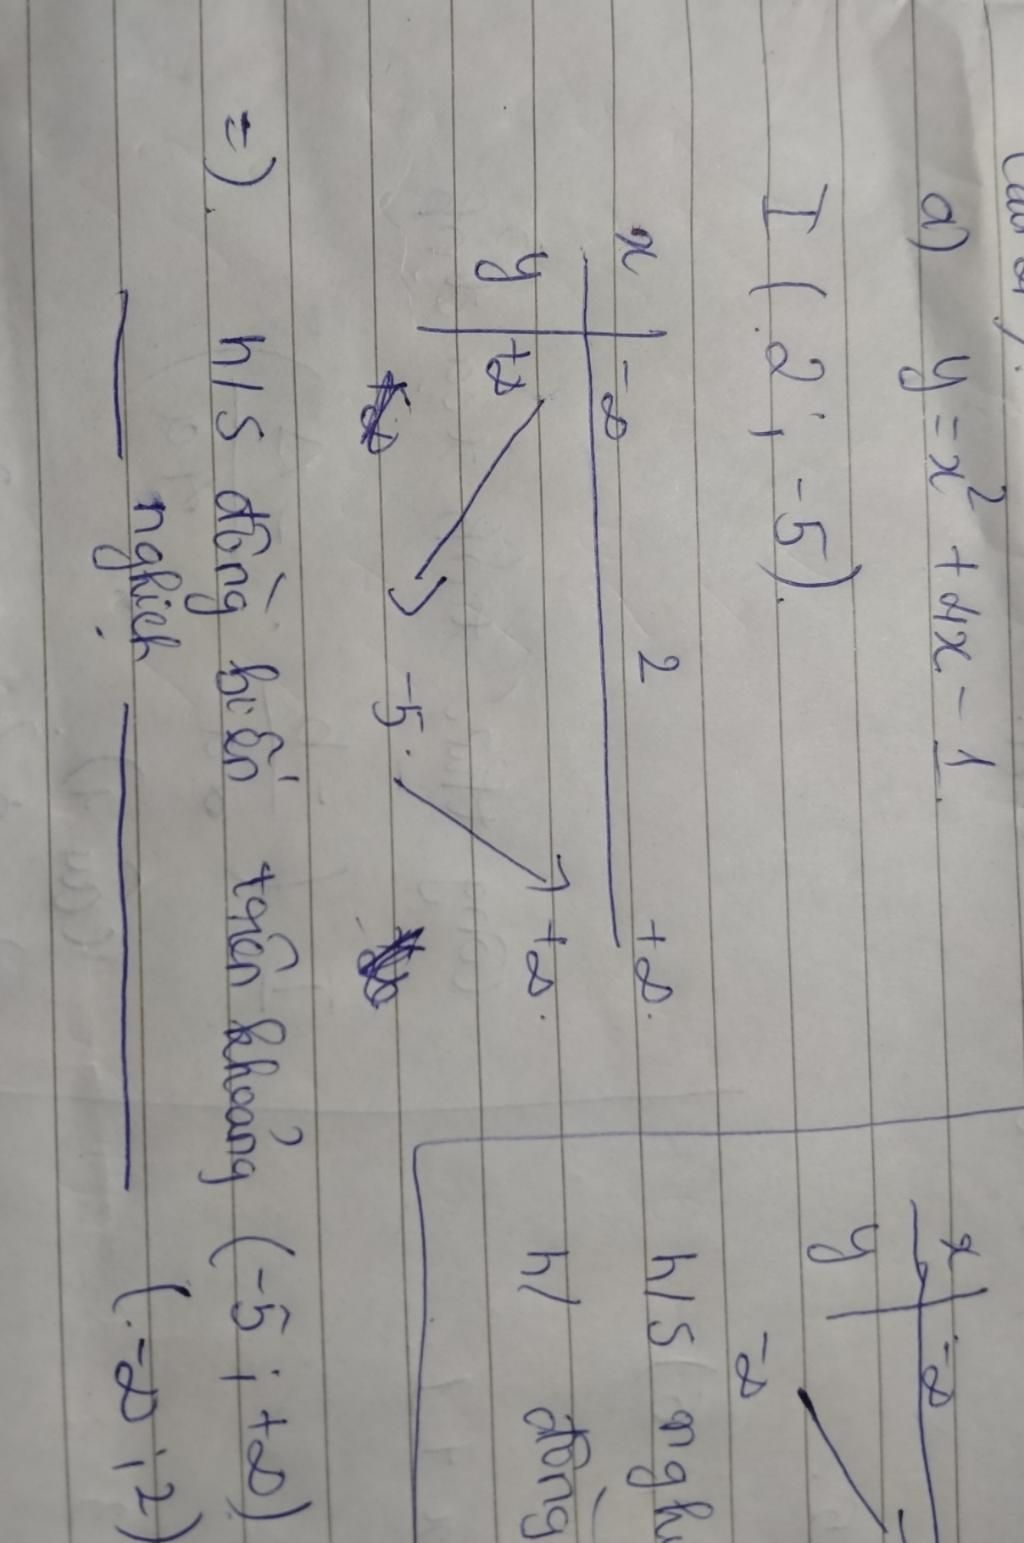 a) y = x² + 4x - 1
I ( 2 ; -5).
x -∞ 2 +∞.
y +∞ -5. +∞.
=). h/s đồng biến trên khoảng (-5 ; +∞)
nghịch (-∞ ; 2)
x -∞
y
-∞
h/s
h/ đồng